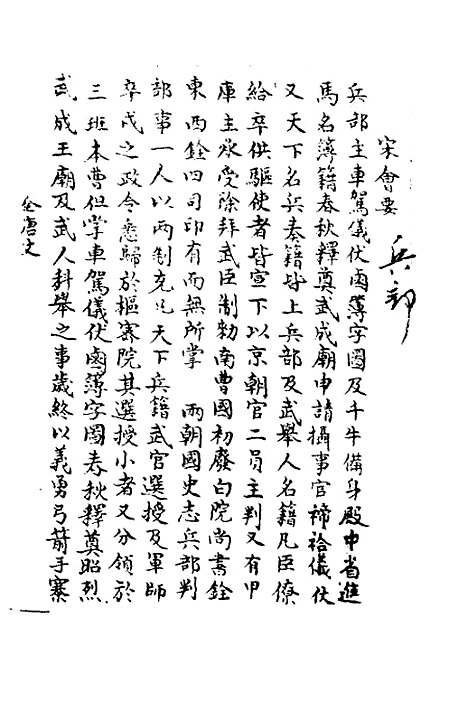 宋會要
兵部
兵部主車駕儀仗鹵簿字圖及千牛備身殿中省進
馬名簿籍春秋釋奠武成廟申請攝事官禘祫儀仗
又天下名兵奏籍皆上兵部及武舉人名籍凡臣僚
給卒供驅使者皆宣下以京朝官二員主判又有甲
庫主承受除拜武臣制勑南曹國初廢白院尚書銓
東西銓四司印有而無所掌 兩朝國史志兵部判
部事一人以兩制充凡天下兵籍武官選授及軍師
卒戍之政令悉歸於樞密院其選授小者又分領於
三班本曹但掌車駕儀仗鹵簿字圖春秋釋奠昭烈
武成王廟及武人科舉之事歲終以義勇弓箭手寨
全唐文